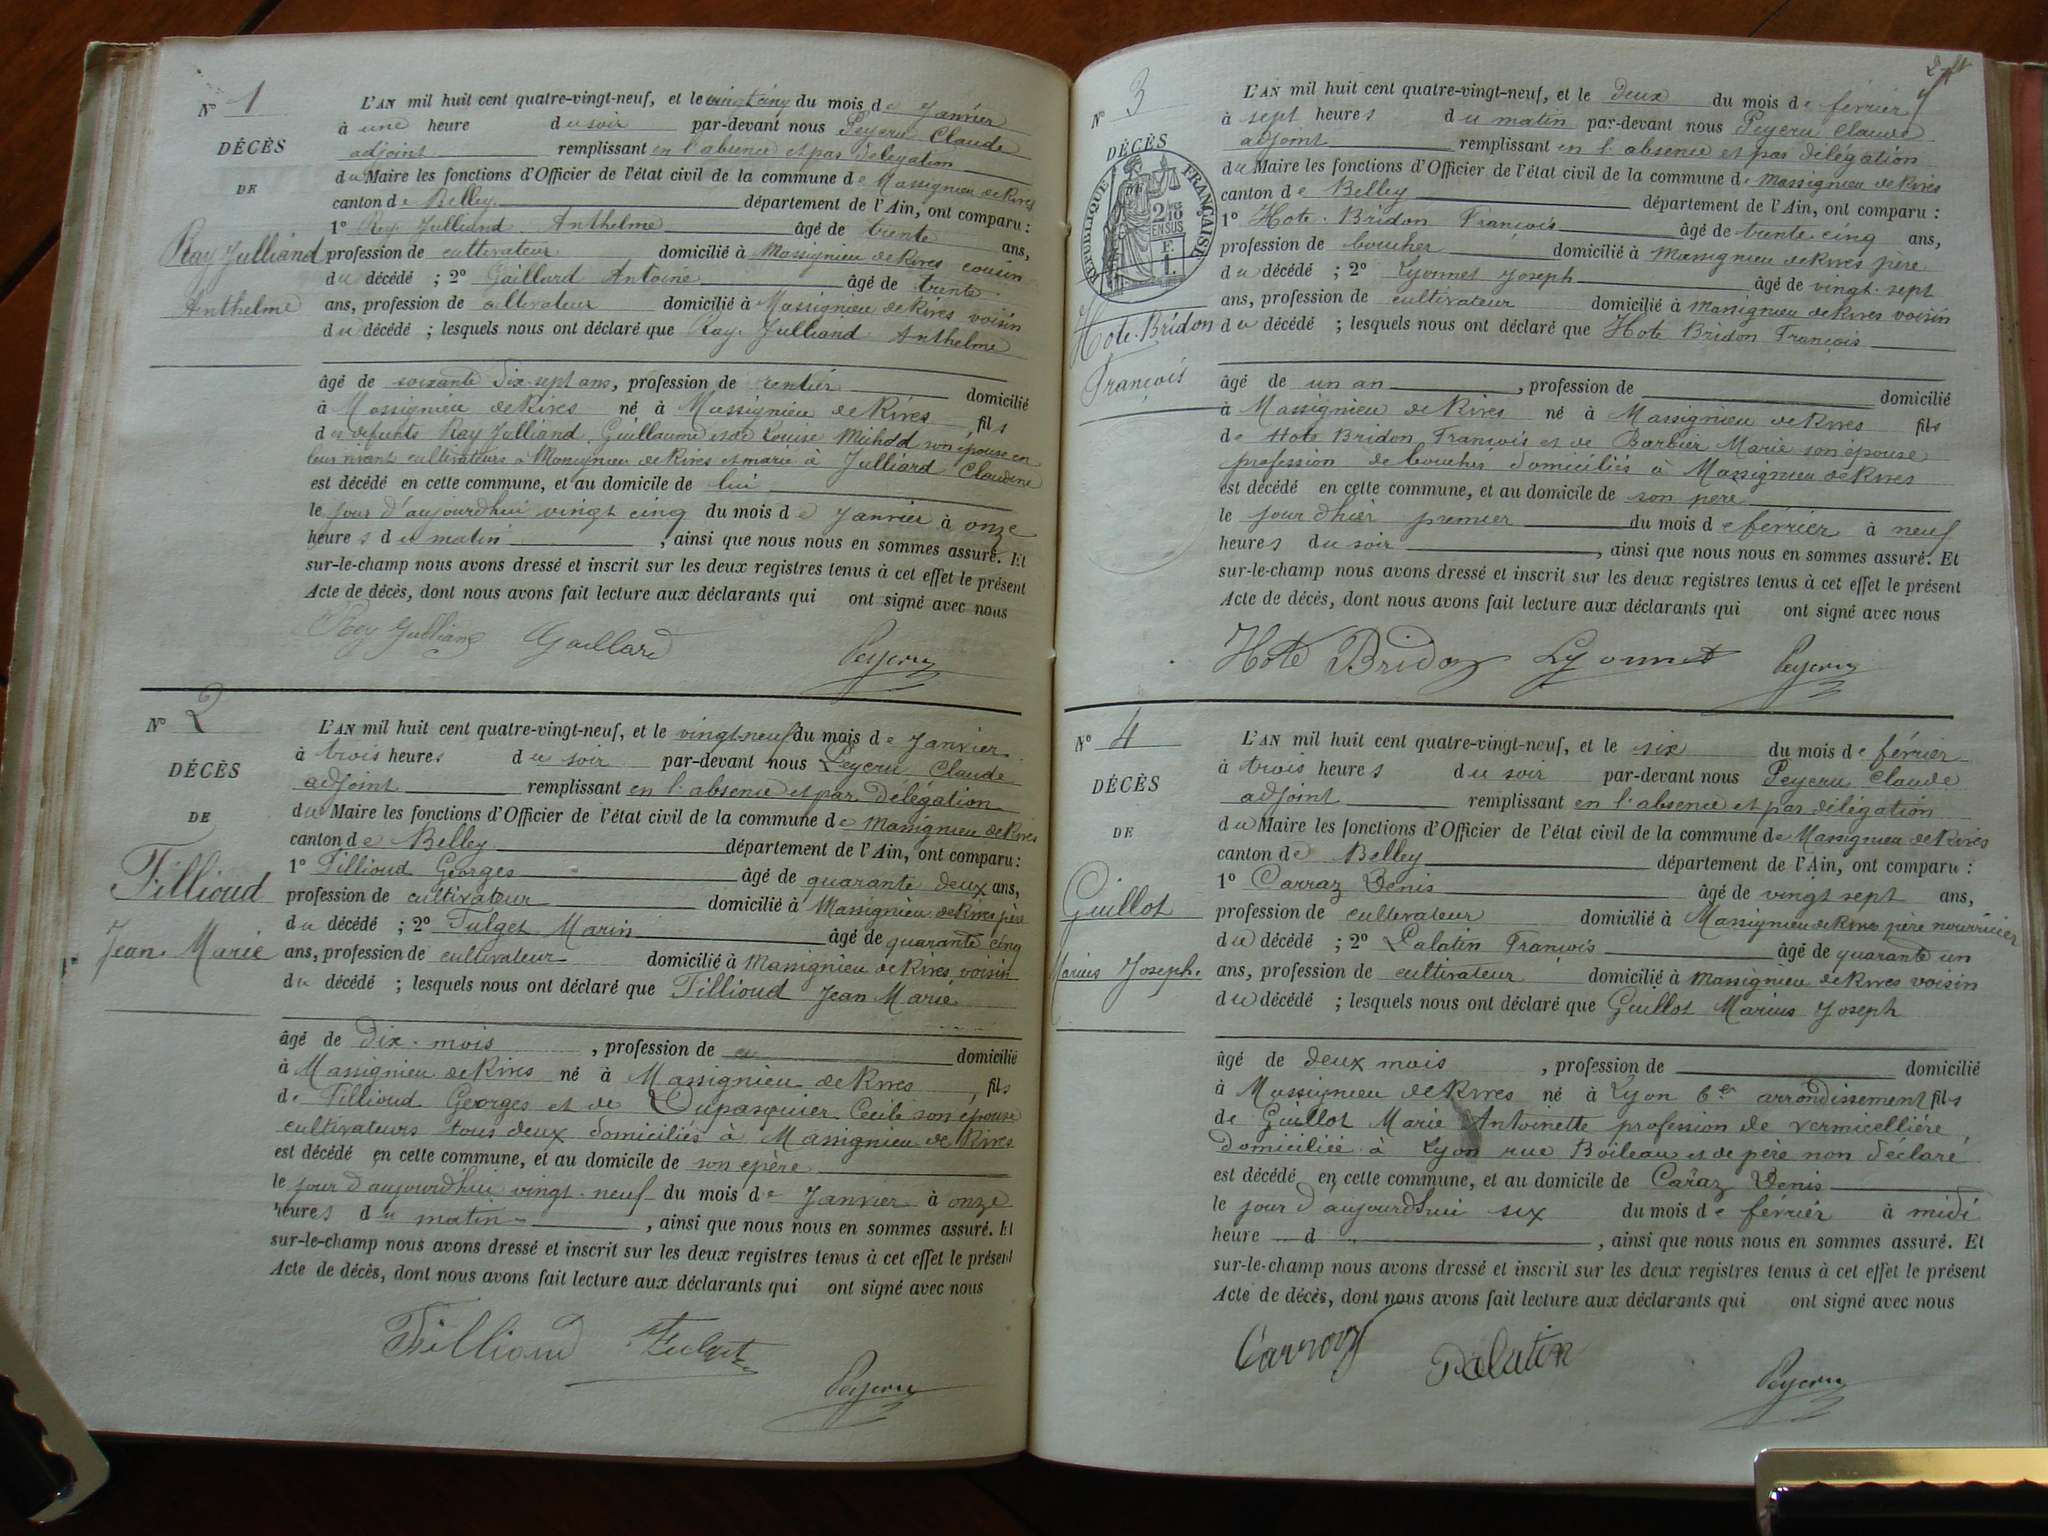 N° 1
DÉCÈS
DE
Ray Julliand
Anthelme
L'AN mil huit cent quatre-vingt-neuf, et le vingt cinq du mois de Janvier
à une heure du soir par-devant nous Peyeru Claude
adjoint remplissant en l'absence et par délégation
du Maire les fonctions d'Officier de l'état civil de la commune de Massignieu de Rives
canton de Belley département de l'Ain, ont comparu :
1° Rey Julliand Anthelme âgé de trente ans,
profession de cultivateur domicilié à Massignieu de Rives cousin
du décédé ; 2° Gaillard Antoine âgé de trente
ans, profession de cultivateur domicilié à Massignieu de Rives voisin
du décédé ; lesquels nous ont déclaré que Ray Julliand Anthelme
âgé de soixante dix sept ans, profession de rentier domicilié
à Massignieu de Rives né à Massignieu de Rives, fils
des défunts Ray Julliand Guillaume et de Louise son épouse en
leur vivant cultivateurs à Massignieu de Rives et marié à Julliard Claudine
est décédé en cette commune, et au domicile de lui
le jour d'aujourdhui vingt cinq du mois de Janvier à onze
heures du matin, ainsi que nous nous en sommes assuré. Et
sur-le-champ nous avons dressé et inscrit sur les deux registres tenus à cet effet le présent
Acte de décès, dont nous avons fait lecture aux déclarants qui ont signé avec nous
Rey Julliand Gaillard Peyeru
N° 2
DÉCÈS
DE
Fillioud
Jean Marie
L'AN mil huit cent quatre-vingt-neuf, et le vingt-neuf du mois de Janvier
à trois heures du soir par-devant nous Peyeru Claude
adjoint remplissant en l'absence et par délégation
du Maire les fonctions d'Officier de l'état civil de la commune de Massignieu de Rives
canton de Belley département de l'Ain, ont comparu :
1° Fillioud Georges âgé de quarante deux ans,
profession de cultivateur domicilié à Massignieu de Rives père
du décédé ; 2° Fulget Marin âgé de quarante cinq
ans, profession de cultivateur domicilié à Massignieu de Rives voisin
du décédé ; lesquels nous ont déclaré que Fillioud Jean Marie
âgé de dix mois, profession de domicilié
à Massignieu de Rives né à Massignieu de Rives, fils
de Fillioud Georges et de Dupasquier Cecile son épouse
cultivateurs tous deux domiciliés à Massignieu de Rives
est décédé en cette commune, et au domicile de son père
le jour d'aujourdhui vingt-neuf du mois de Janvier à onze
heures du matin, ainsi que nous nous en sommes assuré. Et
sur-le-champ nous avons dressé et inscrit sur les deux registres tenus à cet effet le présent
Acte de décès, dont nous avons fait lecture aux déclarants qui ont signé avec nous
Fillioud Fulget Peyeru
N° 3
DÉCÈS
RÉPUBLIQUE FRANÇAISE
2/10 EN SUS
Hote-Bridon
François
L'AN mil huit cent quatre-vingt-neuf, et le deux du mois de février
à sept heures du matin par-devant nous Peyeru Claude
adjoint remplissant en l'absence et par délégation
du Maire les fonctions d'Officier de l'état civil de la commune de Massignieu de Rives
canton de Belley département de l'Ain, ont comparu :
1° Hote-Bridon François âgé de trente cinq ans,
profession de boucher domicilié à Massignieu de Rives père
du décédé ; 2° Lyonnet Joseph âgé de vingt-sept
ans, profession de cultivateur domicilié à Massignieu de Rives voisin
du décédé ; lesquels nous ont déclaré que Hote Bridon François
âgé de un an, profession de domicilié
à Massignieu de Rives né à Massignieu de Rives fils
de Hote Bridon François et de Barbier Marie son épouse
profession de bouchers domiciliés à Massignieu de Rives
est décédé en cette commune, et au domicile de son père
le jour d'hier premier du mois de février à neuf
heures du soir, ainsi que nous nous en sommes assuré. Et
sur-le-champ nous avons dressé et inscrit sur les deux registres tenus à cet effet le présent
Acte de décès, dont nous avons fait lecture aux déclarants qui ont signé avec nous
Hote Bridon Lyonnet Peyeru
N° 4
DÉCÈS
DE
Guillot
Marius Joseph
L'AN mil huit cent quatre-vingt-neuf, et le six du mois de février
à trois heures du soir par-devant nous Peyeru Claude
adjoint remplissant en l'absence et par délégation
du Maire les fonctions d'Officier de l'état civil de la commune de Massignieu de Rives
canton de Belley département de l'Ain, ont comparu :
1° Carraz Denis âgé de vingt sept ans,
profession de cultivateur domicilié à Massignieu de Rives père nourricier
du décédé ; 2° Palatin François âgé de quarante un
ans, profession de cultivateur domicilié à Massignieu de Rives voisin
du décédé ; lesquels nous ont déclaré que Guillot Marius Joseph
âgé de deux mois, profession de domicilié
à Massignieu de Rives né à Lyon 6er arrondissement fils
de Guillot Marie Antoinette profession de vermicellière,
domiciliée à Lyon rue Boileau et de père non déclaré
est décédé en cette commune, et au domicile de Caraz Denis
le jour d'aujourdhui six du mois de février à midi
heure d, ainsi que nous nous en sommes assuré. Et
sur-le-champ nous avons dressé et inscrit sur les deux registres tenus à cet effet le présent
Acte de décès, dont nous avons fait lecture aux déclarants qui ont signé avec nous
Carraz Palatin Peyeru